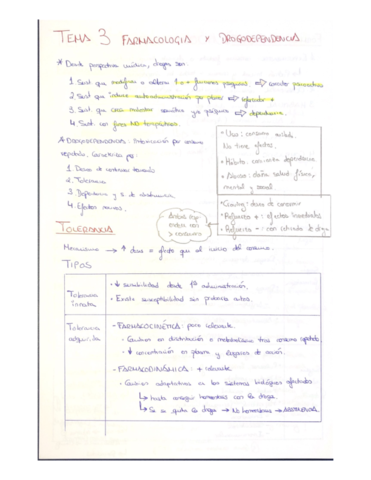 TEMA 3 FARMACOLOGÍA Y DROGODEPENDENCIA
* Desde perspectiva unitaria, drogas son:
1. Sust. que modifica o altera 1 o + funciones psíquicas ⇒ carácter psicoactivo
2. Sust. que induce autoadministración por placer ⇒ reforzador +
3. Sust. que crea malestar somático y/o psíquico ⇒ dependencia.
4. Sust. con fines NO terapéuticos.
* DROGODEPENDENCIA: Intoxicación por consumo
repetido. Caracterizada por:
1. Deseo de continuar tomando
2. Tolerancia
3. Dependencia y s. de abstinencia.
4. Efectos nocivos.
- Uso: consumo aislado.
No tiene efectos.
- Hábito: consumo dependencia
- Abuso: daña salud física,
mental y social.
- Craving: deseo de consumir
- Refuerzo +: efectos inmediatos
- Refuerzo -: con retirada de droga
ambas
consumo
TOLERANCIA
Mecanismo → ↑ dosis o efecto que el inicio del consumo.
TIPOS
Tolerancia
innata
- ↓ sensibilidad desde 1ª administración.
- Existe susceptibilidad sin probarla antes.
Tolerancia
adquirida
- FARMACOCINÉTICA: poco relevante.
· Cambios en distribución o metabolismo tras consumo repetido.
· ↓ concentración en plasma y lugares de acción.
- FARMACODINÁMICA: + relevante.
· Cambios adaptativos en los sistemas biológicos afectados
↳ hasta conseguir homeostasis con la droga.
↳ Si se quita la droga → No homeostasis → ABSTINENCIA.